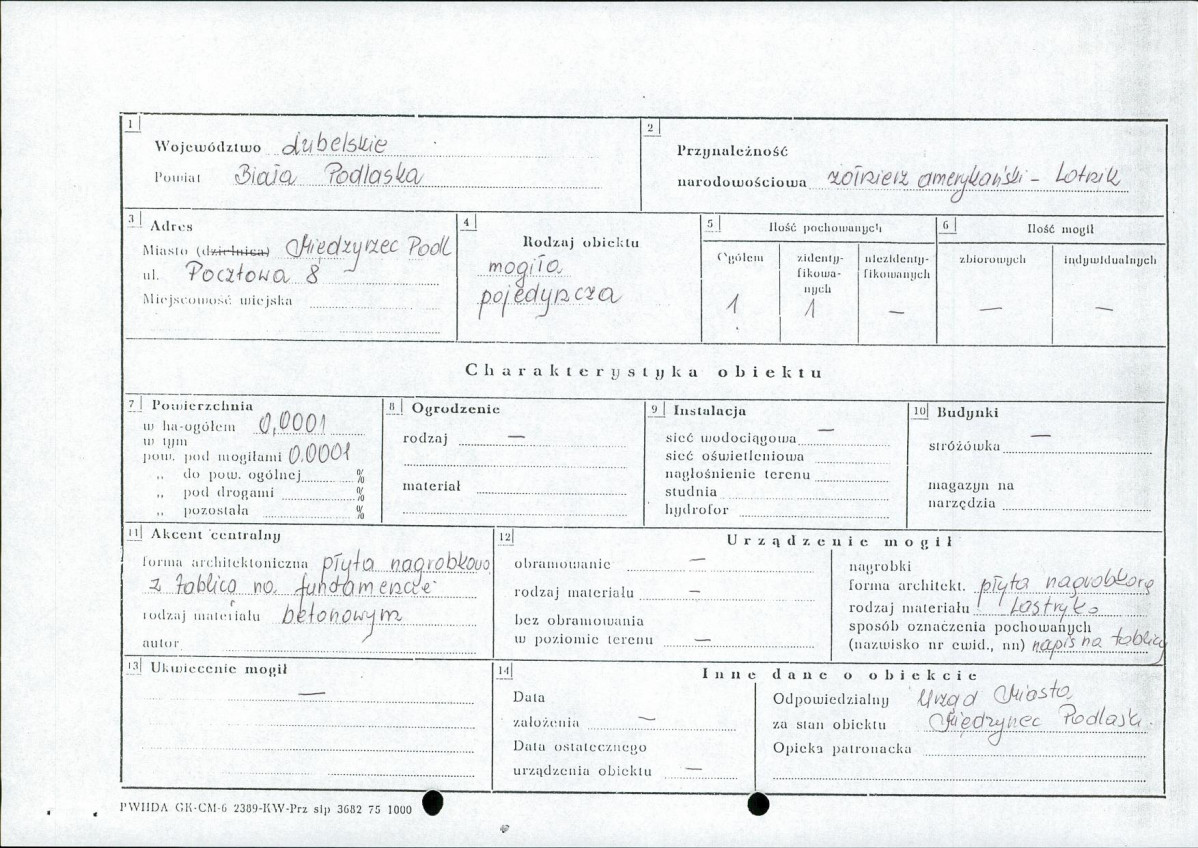 1
Województwo Lubelskie
Powiat Biała Podlaska
2
Przynależność
narodowościowa żołnierz amerykański - Lotnik
3 Adres
Miasto (dzielnica) Międzyrzec Podl
ul. Pocztowa 8
Miejscowość wiejska
4
Rodzaj obiektu
mogiła
pojedyncza
5 Ilość pochowanych
Ogółem
1
zidenty-
fikowa-
nych
1
niezidenty-
fikowanych
—
6 Ilość mogił
zbiorowych
—
indywidualnych
—
Charakterystyka obiektu
7 Powierzchnia
w ha-ogółem 0,0001
w tym
pow. pod mogiłami 0.0001
„ do pow. ogólnej %
„ pod drogami %
„ pozostała %
8 Ogrodzenie
rodzaj —
materiał
9 Instalacja
sieć wodociągowa —
sieć oświetleniowa
nagłośnienie terenu
studnia
hydrofor
10 Budynki
stróżówka —
magazyn na
narzędzia
11 Akcent centralny
forma architektoniczna płyta nagrobkowa
z tablicą na fundamencie
rodzaj materiału betonowym
autor
12 Urządzenie mogił
obramowanie —
rodzaj materiału —
bez obramowania
w poziomie terenu —
nagrobki
forma architekt. płyta nagrobkowa
rodzaj materiału Lastryko
sposób oznaczenia pochowanych
(nazwisko nr ewid., nn) napis na tablicy
13 Ukwiecenie mogił
—
14 Inne dane o obiekcie
Data
założenia —
Data ostatecznego
urządzenia obiektu —
Odpowiedzialny Urząd Miasta
za stan obiektu Międzyrzec Podlaski.
Opieka patronacka
PWHDA GK-CM-6 2389-KW-Prz slp 3682 75 1000